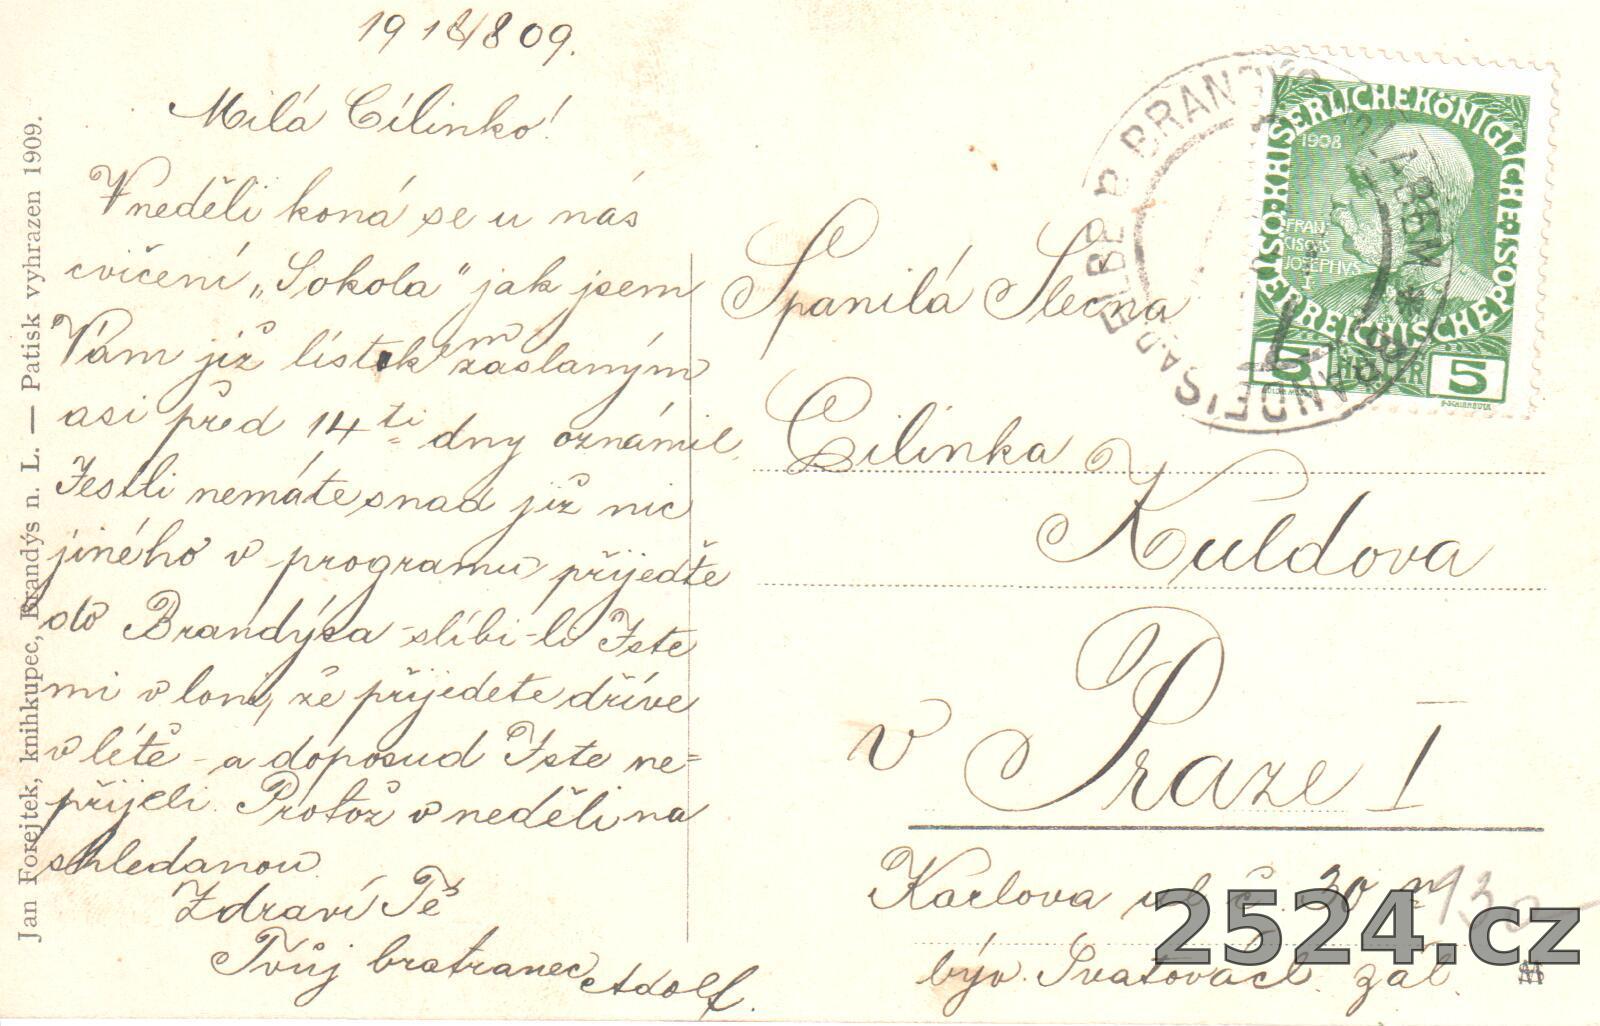 Milá Cílinko!
V neděli koná se u nás
cvičení „Sokola" jak jsem
Vám již lístkem zaslaným
asi před 14ti dny oznámil.
Jestli nemáte snad již nic
jiného v programu přijeďte
do Brandýsa - slíbi-li Jste
mi v loni, že přijedete dříve
v létě - a doposud Jste ne=
přijeli. Protož v neděli na
shledanou
Zdraví Tě
Tvůj bratranec Adolf.
Jan Forejtek, knihkupec, Brandýs n. L. — Patisk vyhrazen 1909.
KAISERLICHE KÖNIGLICHE ÖSTERREICHISCHE POST
1908
FRAN
CISCVS
IOSEPHVS
I
5 HELLER 5
Spanilá Slečna
Cilinka
Kuldova
v Praze I
Karlova ul č. 30 n
býv. Svatovácl. zál.
2524.cz